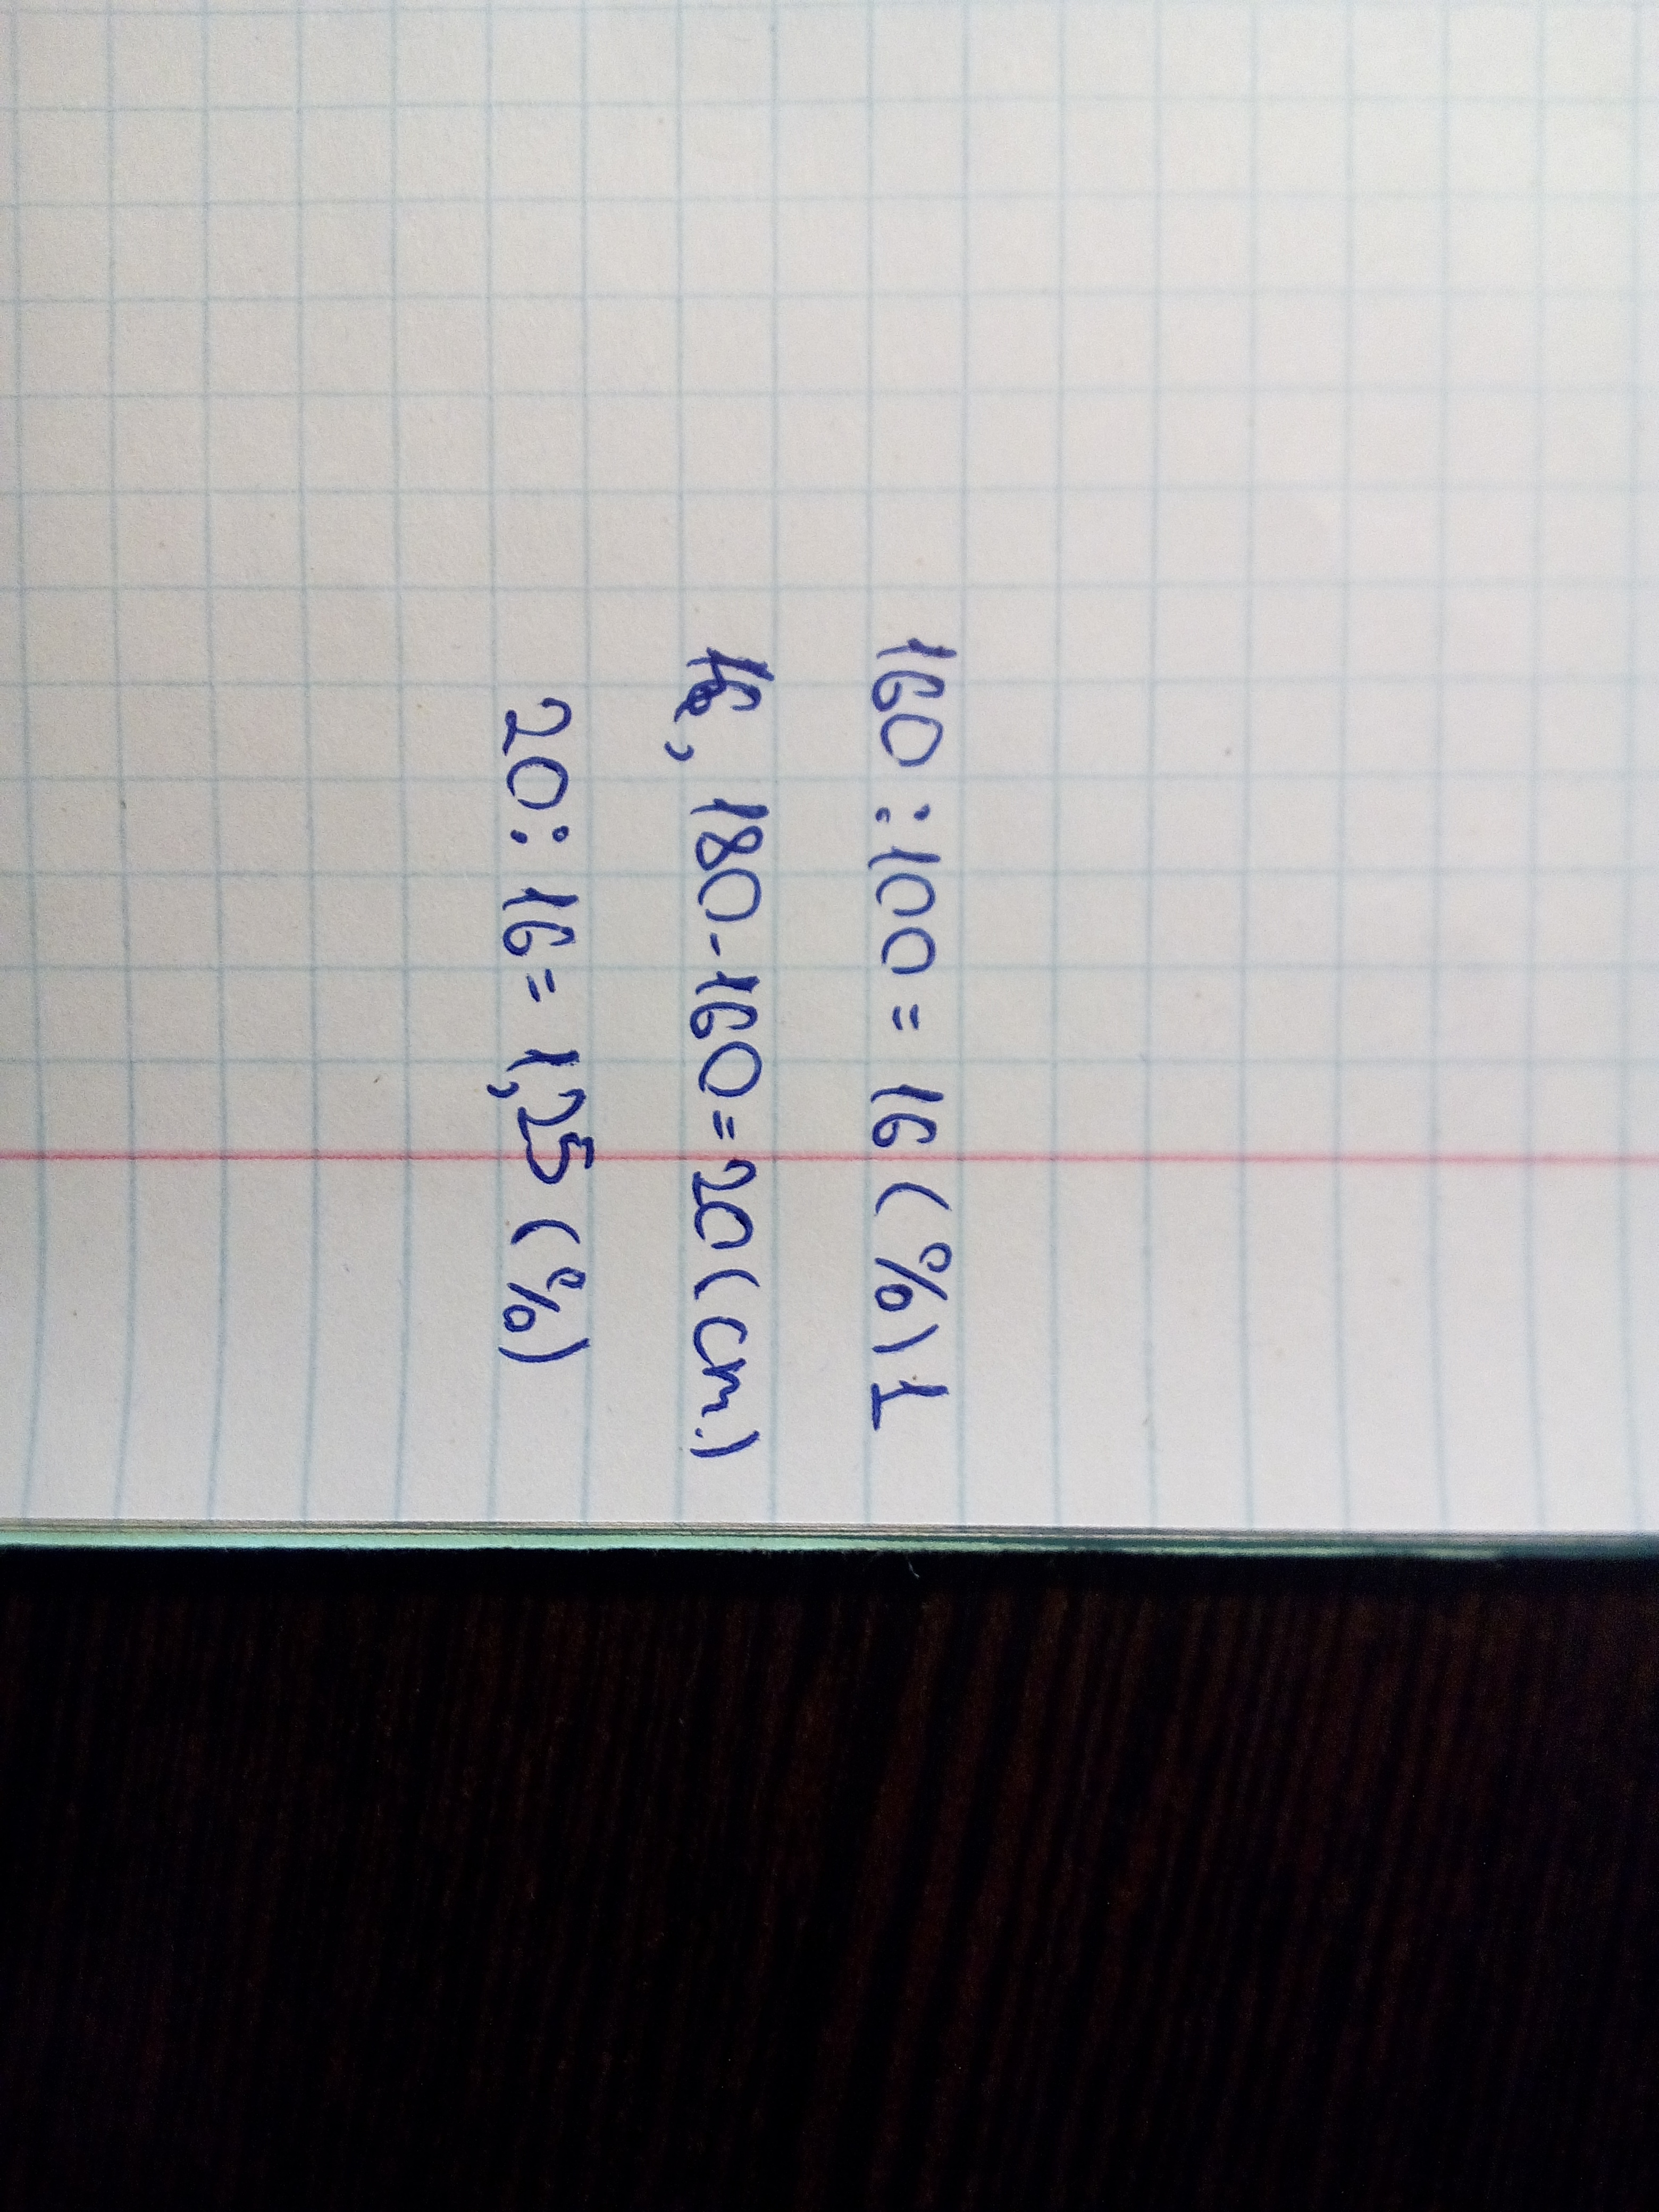 160 : 100 = 16 (%) 1
16, 180-160=20 (cm.)
20 : 16 = 1,25 (%)